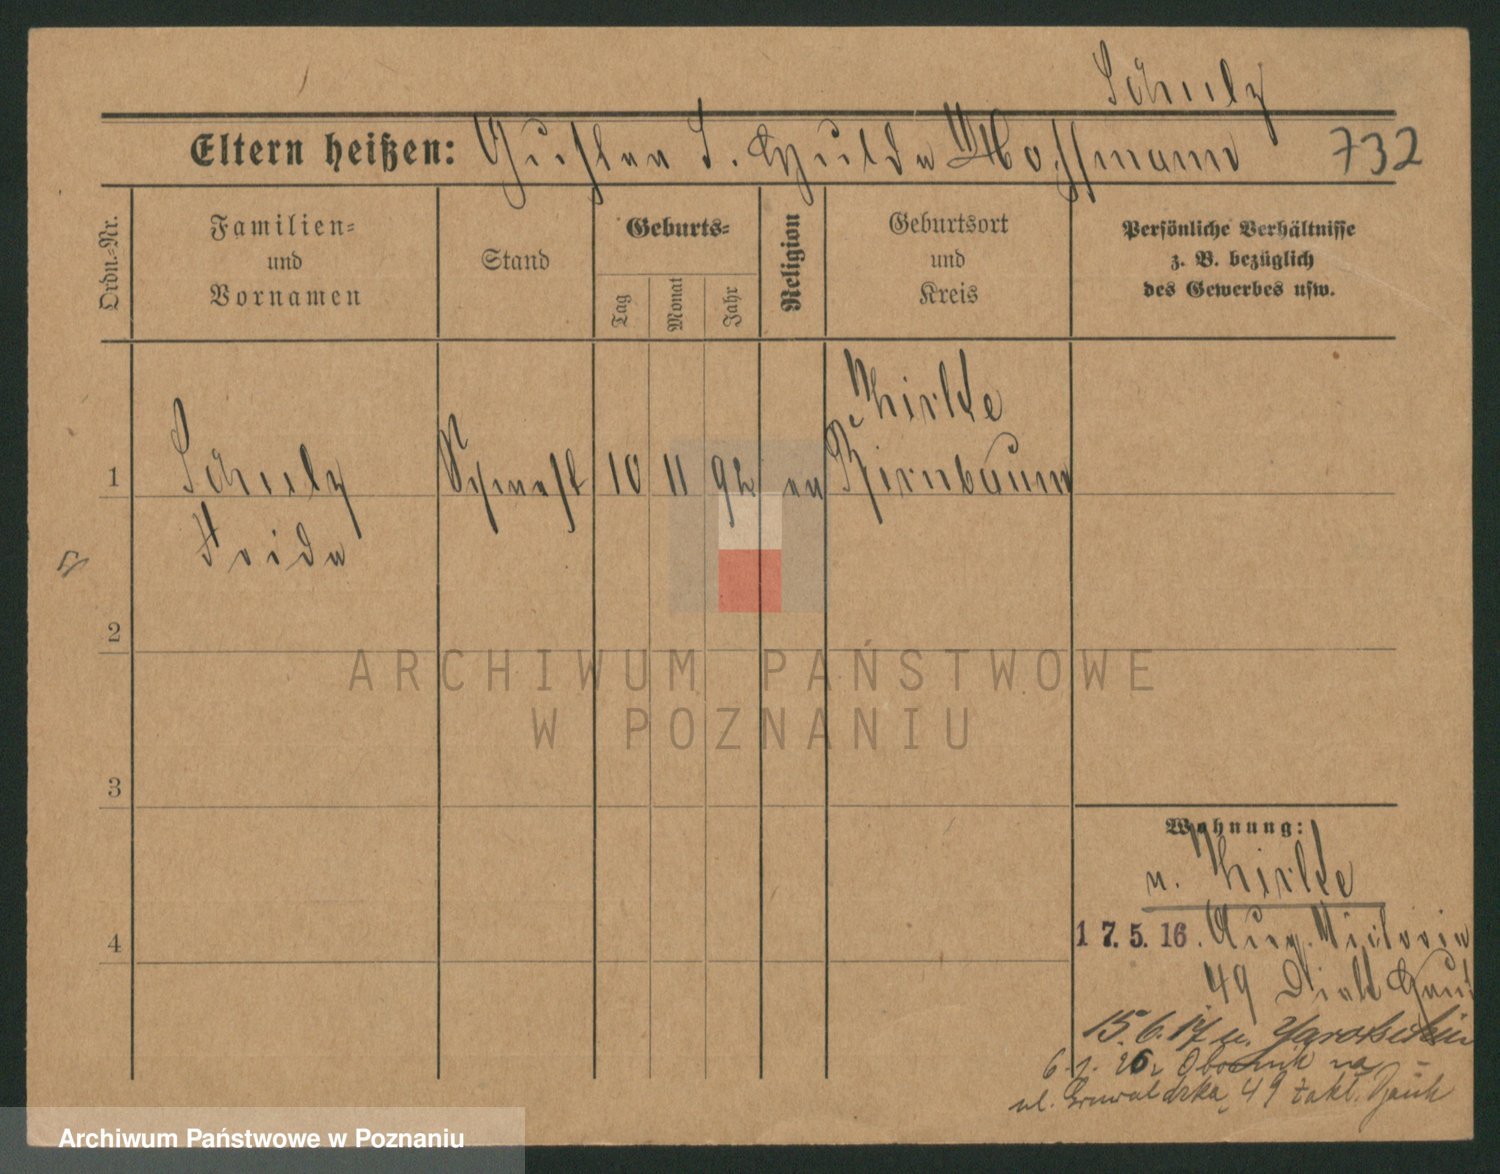 Schulz
Eltern heißen: Gustav u. Hulda Hoffmann 732
Ordn.=Nr.
Familien=
und
Vornamen
Stand
Geburts=
Tag
Monat
Jahr
Religion
Geburtsort
und
Kreis
Persönliche Verhältnisse
z. B. bezüglich
des Gewerbes usw.
1
Schulz
Frida
Schwest
10
11
92
ev
Zirke
Birnbaum
2
3
4
Wohnung:
n. Zirke
17.5.16. Aug. Victoria
49 Diak Haus
15.6.17 n. Jarotschin
Obornik na
ul. Grunwaldzka 49 zakl.
ARCHIWUM PAŃSTWOWE
W POZNANIU
Archiwum Państwowe w Poznaniu